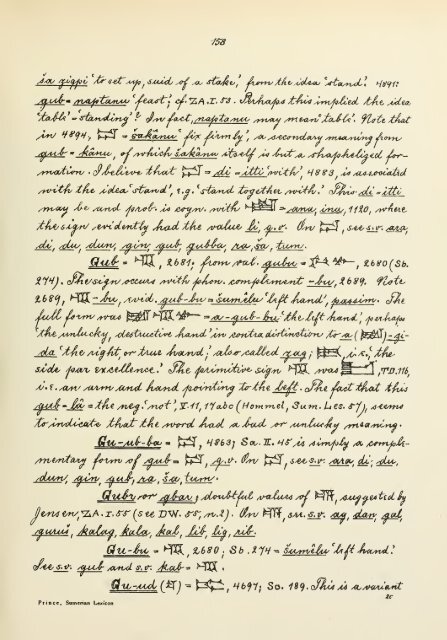 158
ša ziqpi 'to set up, said of a stake,' from the idea 'stand.' 4891:
gub = naptanu 'feast'; cf. ZA. I. 53. Perhaps this implied the idea
'table' = 'standing'? In fact, naptanu may mean 'table'. Note that
in 4894, = šakânu 'fix firmly', a secondary meaning from
gub = kânu, of which šakânu itself is but a shapheliged for-
mation. I believe that = di = itti 'with', 4883, is associated
with the idea 'stand', e.g. 'stand together with.' This di = itti
may be and prob. is cogn. with = ana, ina, 1120, where
the sign evidently had the value li, q.v. On , see s.v. ara,
di, du, dun, gin, gub, gubba, ra, ša, tum.
Gub = , 2681; from val. gubu = , 2680 (Sb.
274). The sign occurs with phon. complement -bu, 2689. Note
2689, -bu, vid. gub-bu = šumêlu 'left hand', passim. The
full form was = a-gub-bu 'the left hand', perhaps
'the unlucky, destructive hand' in contradistinction to a ( )-zi-
da 'the right, or true hand,' also called zag; , i.e., 'the
side par excellence.' The primitive sign was , TD. 116,
i.e. an arm and hand pointing to the left. The fact that this
gub = lâ = the neg. 'not', V. 11, 17abc (Hommel, Sum. Les. 57), seems
to indicate that the word had a bad or unlucky meaning.
Gu-ub-ba = , 4863; Sa. II. 45 is simply a comple-
mentary form of gub = , q.v. On , see s.v. ara, di, du,
dun, gin, gub, ra, ša, tum.
Gubr or gbar; doubtful values of , suggested by
Jensen, ZA. I. 55 (see DW. 55, n. 2). On , see s.v. ag, dan, gal,
guruš, kalag, kala, kal, lib, lig, rib.
Gu-bu = , 2680; Sb. 274 = šumêlu 'left hand.'
See s.v. gub and s.v. kab = .
Gu-ud ( ) = , 4697; So. 189. This is a variant
Prince, Sumerian Lexicon